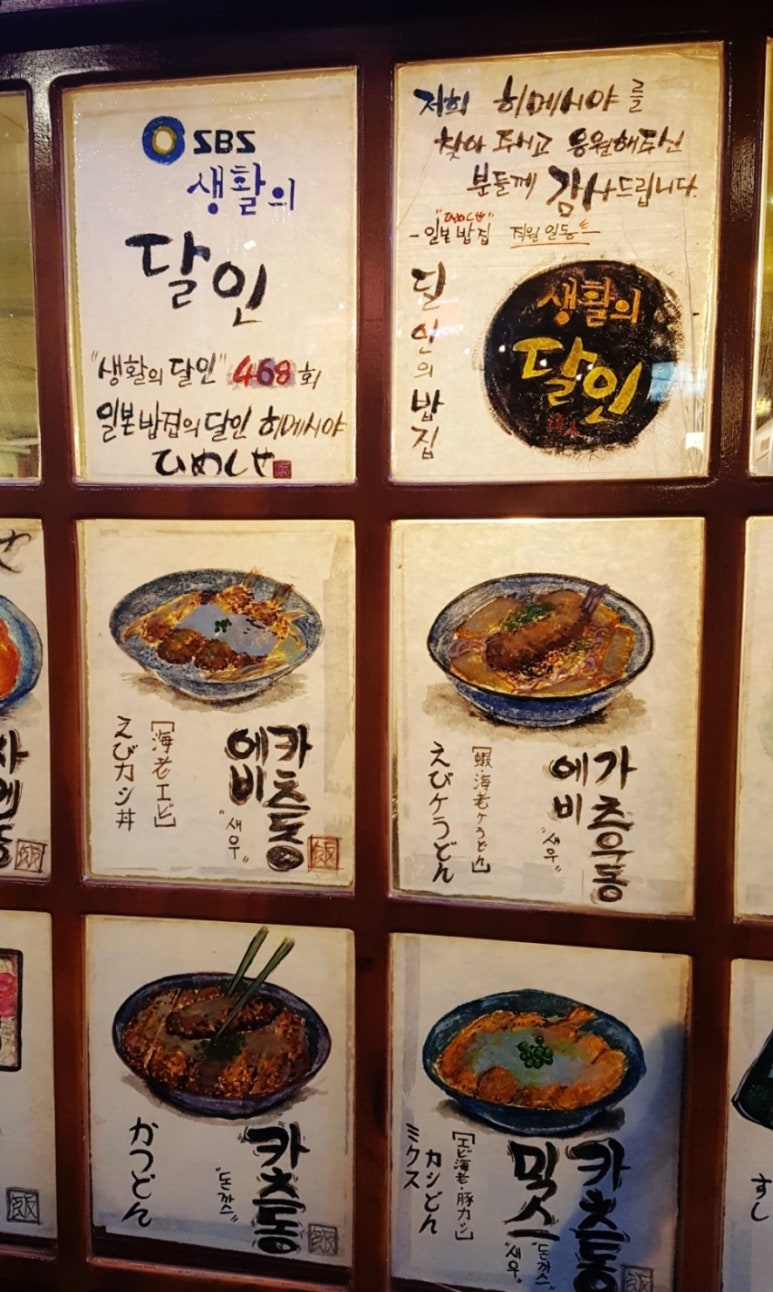 SBS
생활의
달인
"생활의 달인" 468회
일본밥집의 달인 히메시야
ひめしや
저희 히메시야를
찾아주시고 응원해주신
분들께 감사드립니다.
"ひめしや"
-일본밥집 직원일동
달인의밥집
생활의
달인
카츠동
에비
"새우"
[海老エビ]
えびカシ丼
飯
가츠우동
에비
"새우"
[蝦·海老ヶうどん]
えびケうどん
카츠동
"돈까스"
かつどん
飯
카츠동
믹스
"돈까스"
"새우"
[エビ海老·豚カシ]
カシどん
ミクス
飯
すし